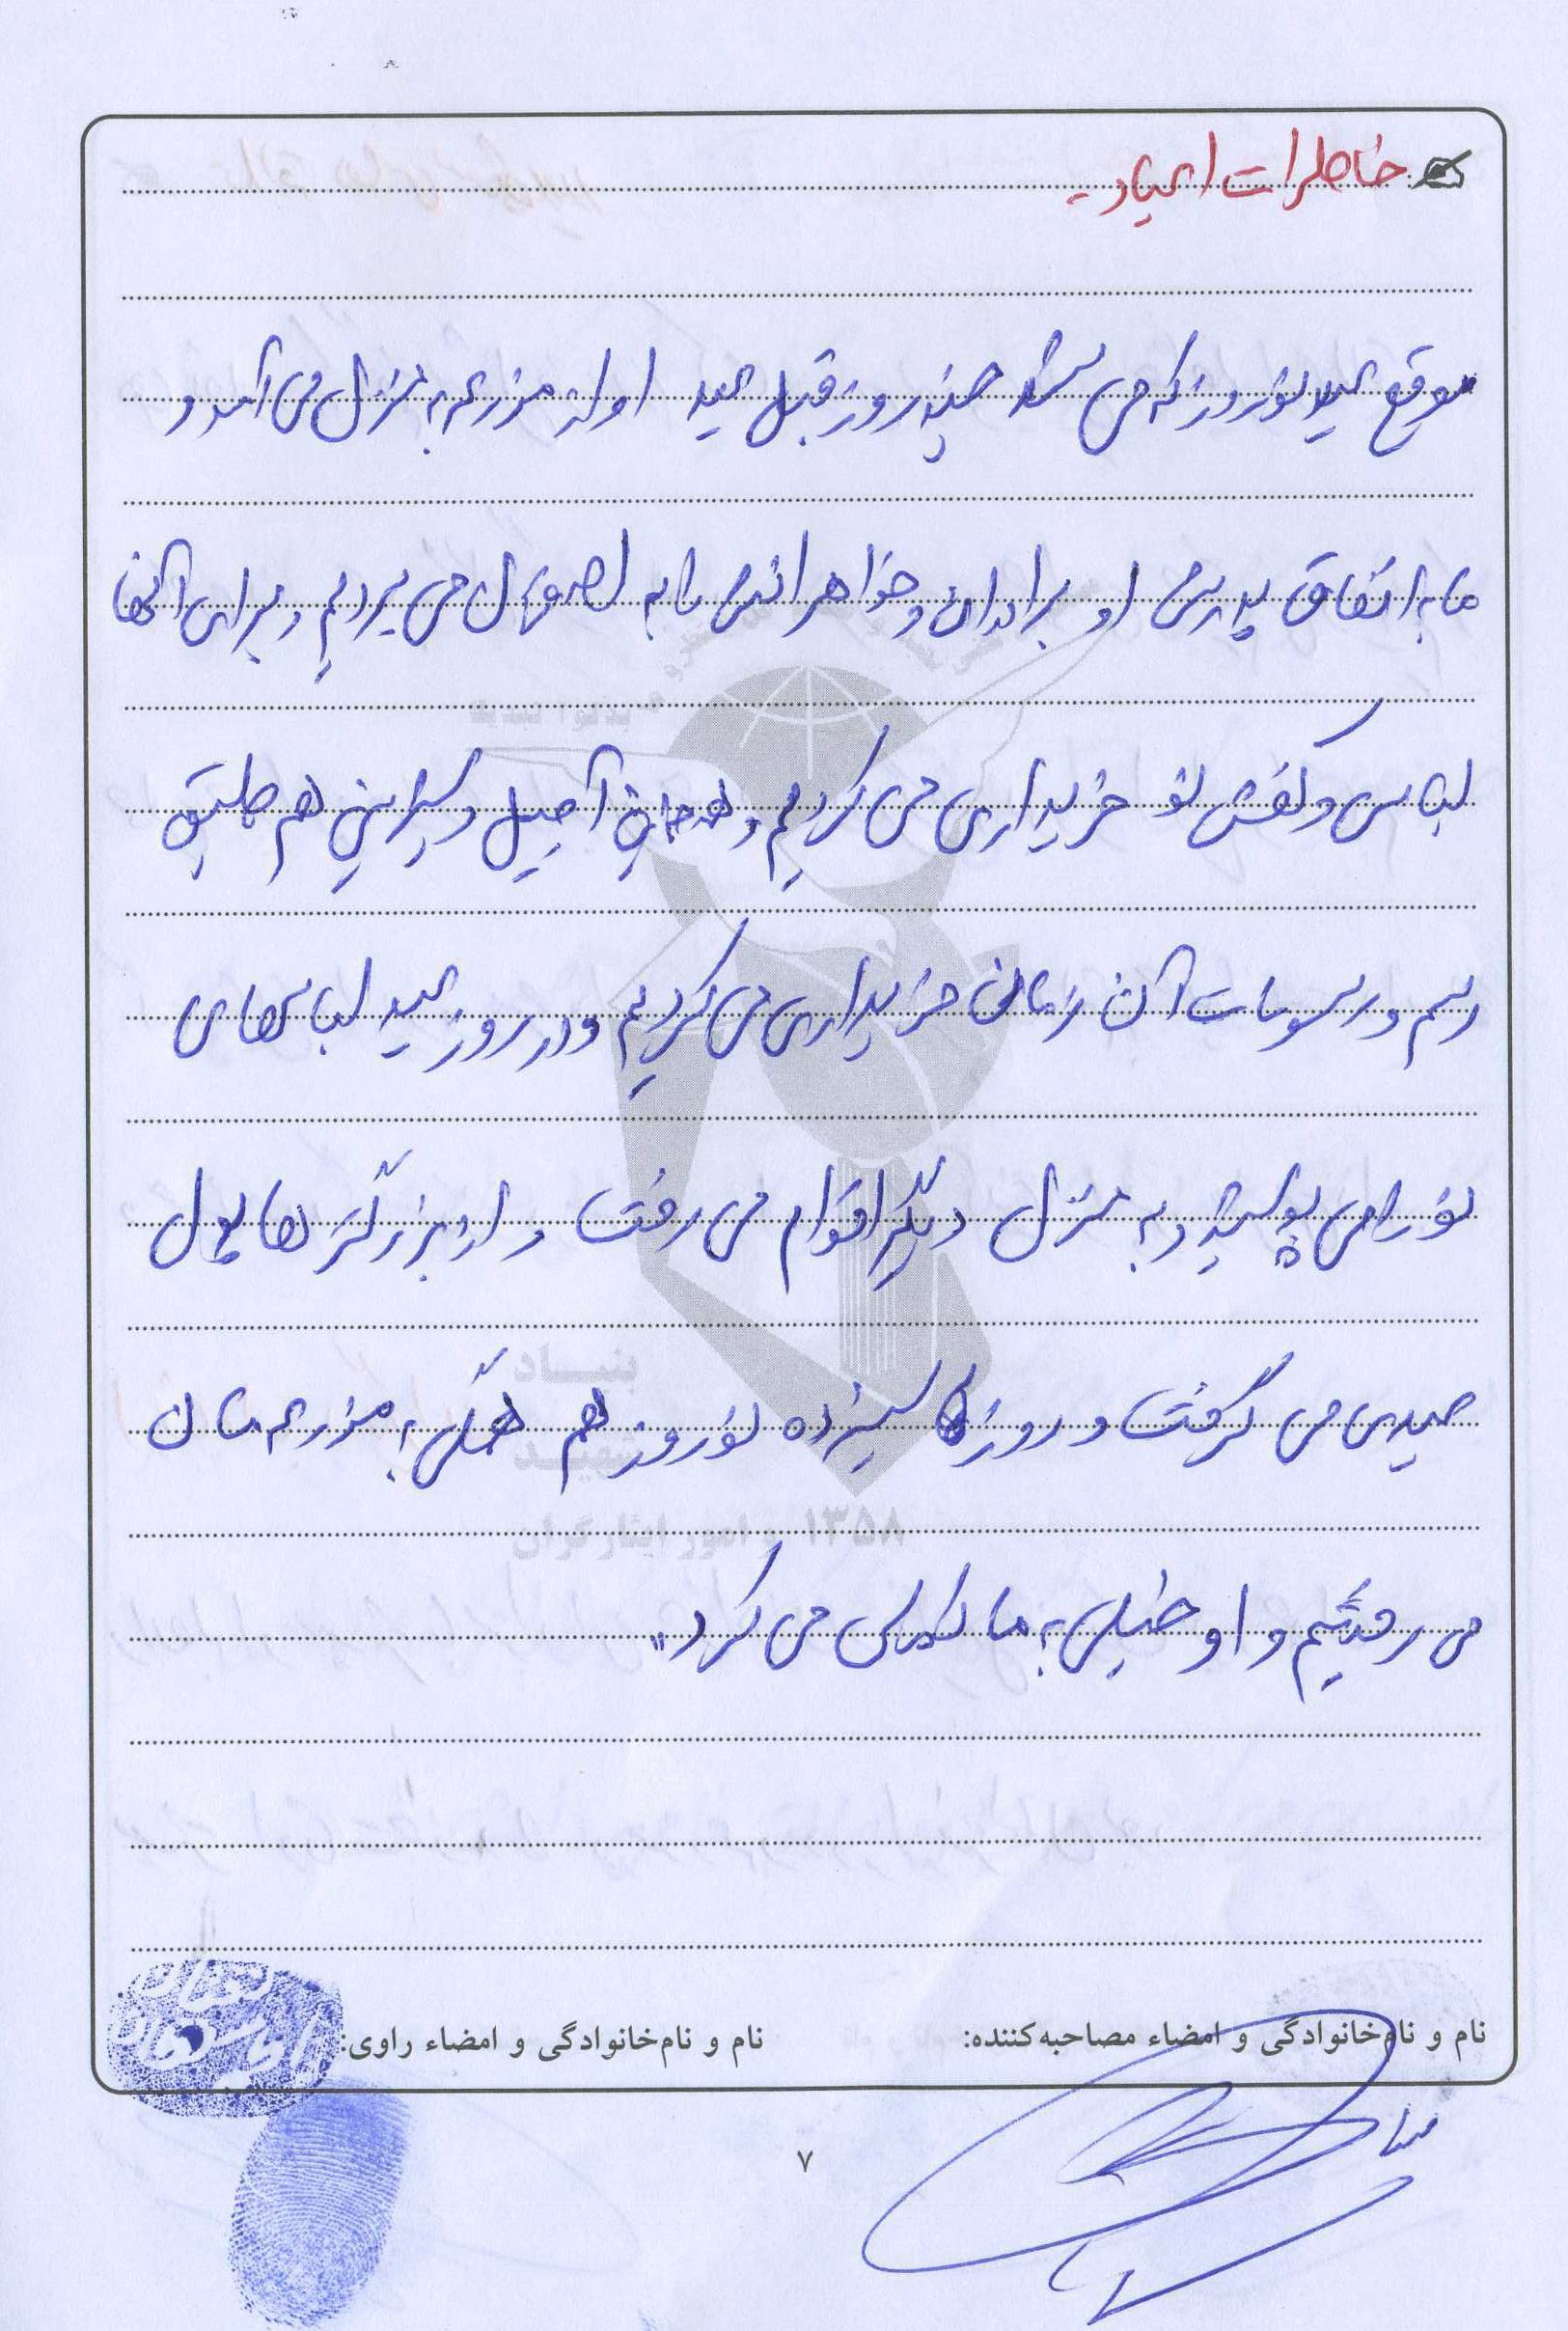 خاطرات اعیاد -
موقع عید نوروز که می شد چند روز قبل عید او از مزرعه به منزل می آمد و
ما به اتفاق پدرش او برادران و خواهرانش را به می بردیم و برای آنها
لباس و کفش نو خریداری می کردیم و همچنین آجیل و شیرینی هم طبق
رسم و رسومات آن زمان خریداری می کردیم و در روز عید لباسهای
نو را می پوشید و به منزل دیگر اقوام می رفت و از بزرگترها پول
عیدی می گرفت و روز سیزده نوروز هم همگی به مزرعه مان
می رفتیم و او خیلی به ما کمک می کرد"
بنیاد
شهید
۱۳۵۸ و امور ایثارگران
نام و نام‌خانوادگی و امضاء مصاحبه‌کننده:
نام و نام‌خانوادگی و امضاء راوی:
۷